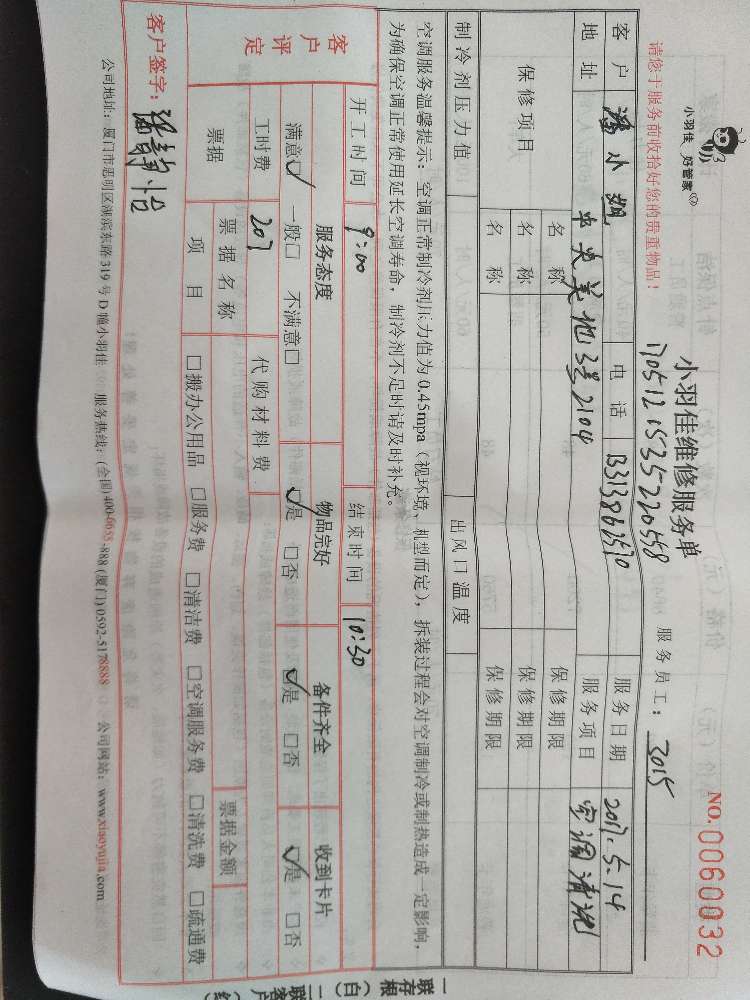 小羽佳 好管家
小羽佳维修服务单
NO.0060032
1705121535220558
请您于服务前收拾好您的贵重物品！
服务员工：3015
客户 潘小姐 电话 13313863570 服务日期 2017.5.14
地址 中央美地3号2104 服务项目 空调清洗
保修项目 名称 保修期限
名称 保修期限
名称 保修期限
制冷剂压力值 出风口温度
空调服务温馨提示：空调正常制冷剂压力值为0.45mpa（视环境、机型而定），拆装过程会对空调制冷或制热造成一定影响，
为确保空调正常使用延长空调寿命，制冷剂不足时请及时补充。
开工时间 9:00 结束时间 10:30
客户评定 服务态度 物品完好 备件齐全 收到卡片
满意☑ 一般□ 不满意□ ☑是 □否 ☑是 □否 ☑是 □否
工时费 207 代购材料费
票据 票据名称 票据金额
项目 □搬办公用品 □服务费 □清洁费 □空调服务费 □清洗费 □疏通费
客户签字：潘静怡
公司地址：厦门市思明区湖滨东路319号D幢小羽佳 服务热线：(全国)400-6688-888 (厦门)0592-5178888 公司网站：www.xiaoyujia.com
一联存根（白） 二联客户（红